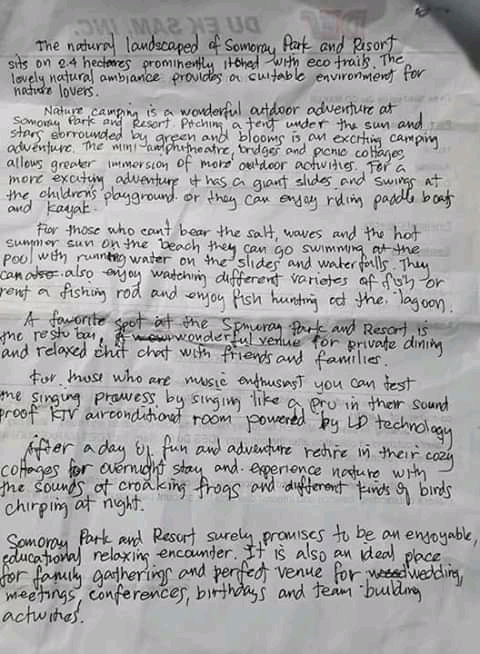 DU EK SAM, INC.
The natural landscaped of Somoray Park and Resort
sits on 2.4 hectares prominently with eco trails. The
lovely natural ambiance provides a suitable environment for
nature lovers.
Nature camping is a wonderful outdoor adventure at
Somoray Park and Resort. Pitching a tent under the sun and
stars sorrounded by green and blooms is an exciting camping
adventure. The mini-amphitheatre, bridges and picnic cottages
allows greater immersion of more outdoor activities. For a
more exciting adventure it has a giant slides and swings at
the children's playground. or they can enjoy riding paddle boats
and kayak.
For those who can't bear the salt, waves and the hot
summer sun on the beach they can go swimming at the
pool with running water on the slides and waterfalls. They
can also enjoy watching different varietes of fish or
rent a fishing rod and enjoy fish hunting at the lagoon.
A favorite spot at the Somoray Park and Resort is
the resto bar, wonderful venue for private dining
and relaxed chit chat with friends and families.
For those who are music enthusiast you can test
the singing prowess by singing like a pro in their sound
proof KTV airconditioned room powered by LD technology
After a day of fun and adventure retire in their cozy
cottages for overnight stay and experience nature with
the sounds of croaking frogs and different kinds of birds
chirping at night.
Somoray Park and Resort surely promises to be an enjoyable,
educational relaxing encounter. It is also an ideal place
for family gatherings and perfect venue for wedding,
meetings conferences, birthdays and team building
activities.